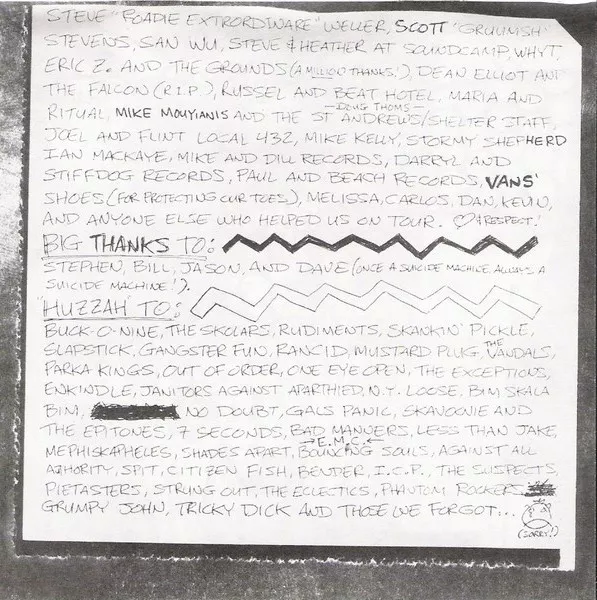 STEVE "ROADIE EXTRORDINARE" WELLER, SCOTT "GRUUNISH"
STEVENS, SAN WU, STEVE & HEATHER AT SOUNDCAMP, WHYT,
ERIC Z. AND THE GROUNDS (A MILLION THANKS!), DEAN ELLIOT AND
THE FALCON (R.I.P.), RUSSEL AND BEAT HOTEL, MARIA AND
RITUAL, MIKE MOUYIANIS AND —DOUG THOMS— THE ST ANDREWS/SHELTER STAFF,
JOEL AND FLINT LOCAL 432, MIKE KELLY, STORMY SHEPHERD
IAN MACKAYE, MIKE AND DILL RECORDS, DARRYL AND
STIFFDOG RECORDS, PAUL AND BEACH RECORDS, VANS'
SHOES (FOR PROTECTING OUR TOES), MELISSA, CARLOS, DAN, KEVIN,
AND ANYONE ELSE WHO HELPED US ON TOUR. ♡ & RESPECT!
BIG THANKS TO:
STEPHEN, BILL, JASON, AND DAVE (ONCE A SUICIDE MACHINE ALWAYS A
SUICIDE MACHINE!).
"HUZZAH" TO:
BUCK-O-NINE, THE SKOLARS, RUDIMENTS, SKANKIN' PICKLE,
SLAPSTICK, GANGSTER FUN, RANCID, MUSTARD PLUG, THE VANDALS,
PARKA KINGS, OUT OF ORDER, ONE EYE OPEN, THE EXCEPTIONS,
ENKINDLE, JANITORS AGAINST APARTHIED, N.Y. LOOSE, BIM SKALA
BIM, NO DOUBT, GALS PANIC, SKAVOOVIE AND
THE EPITONES, 7 SECONDS, BAD MANNERS, LESS THAN JAKE,
MEPHISKAPHELES, SHADES APART, →E.M.C.← BOUNCING SOULS, AGAINST ALL
AUTHORITY, SPIT, CITIZEN FISH, BENDER, I.C.P., THE SUSPECTS,
PIETASTERS, STRUNG OUT, THE ECLECTICS, PHANTOM ROCKERS
GRUMPY JOHN, TRICKY DICK AND THOSE WE FORGOT...
(SORRY!)